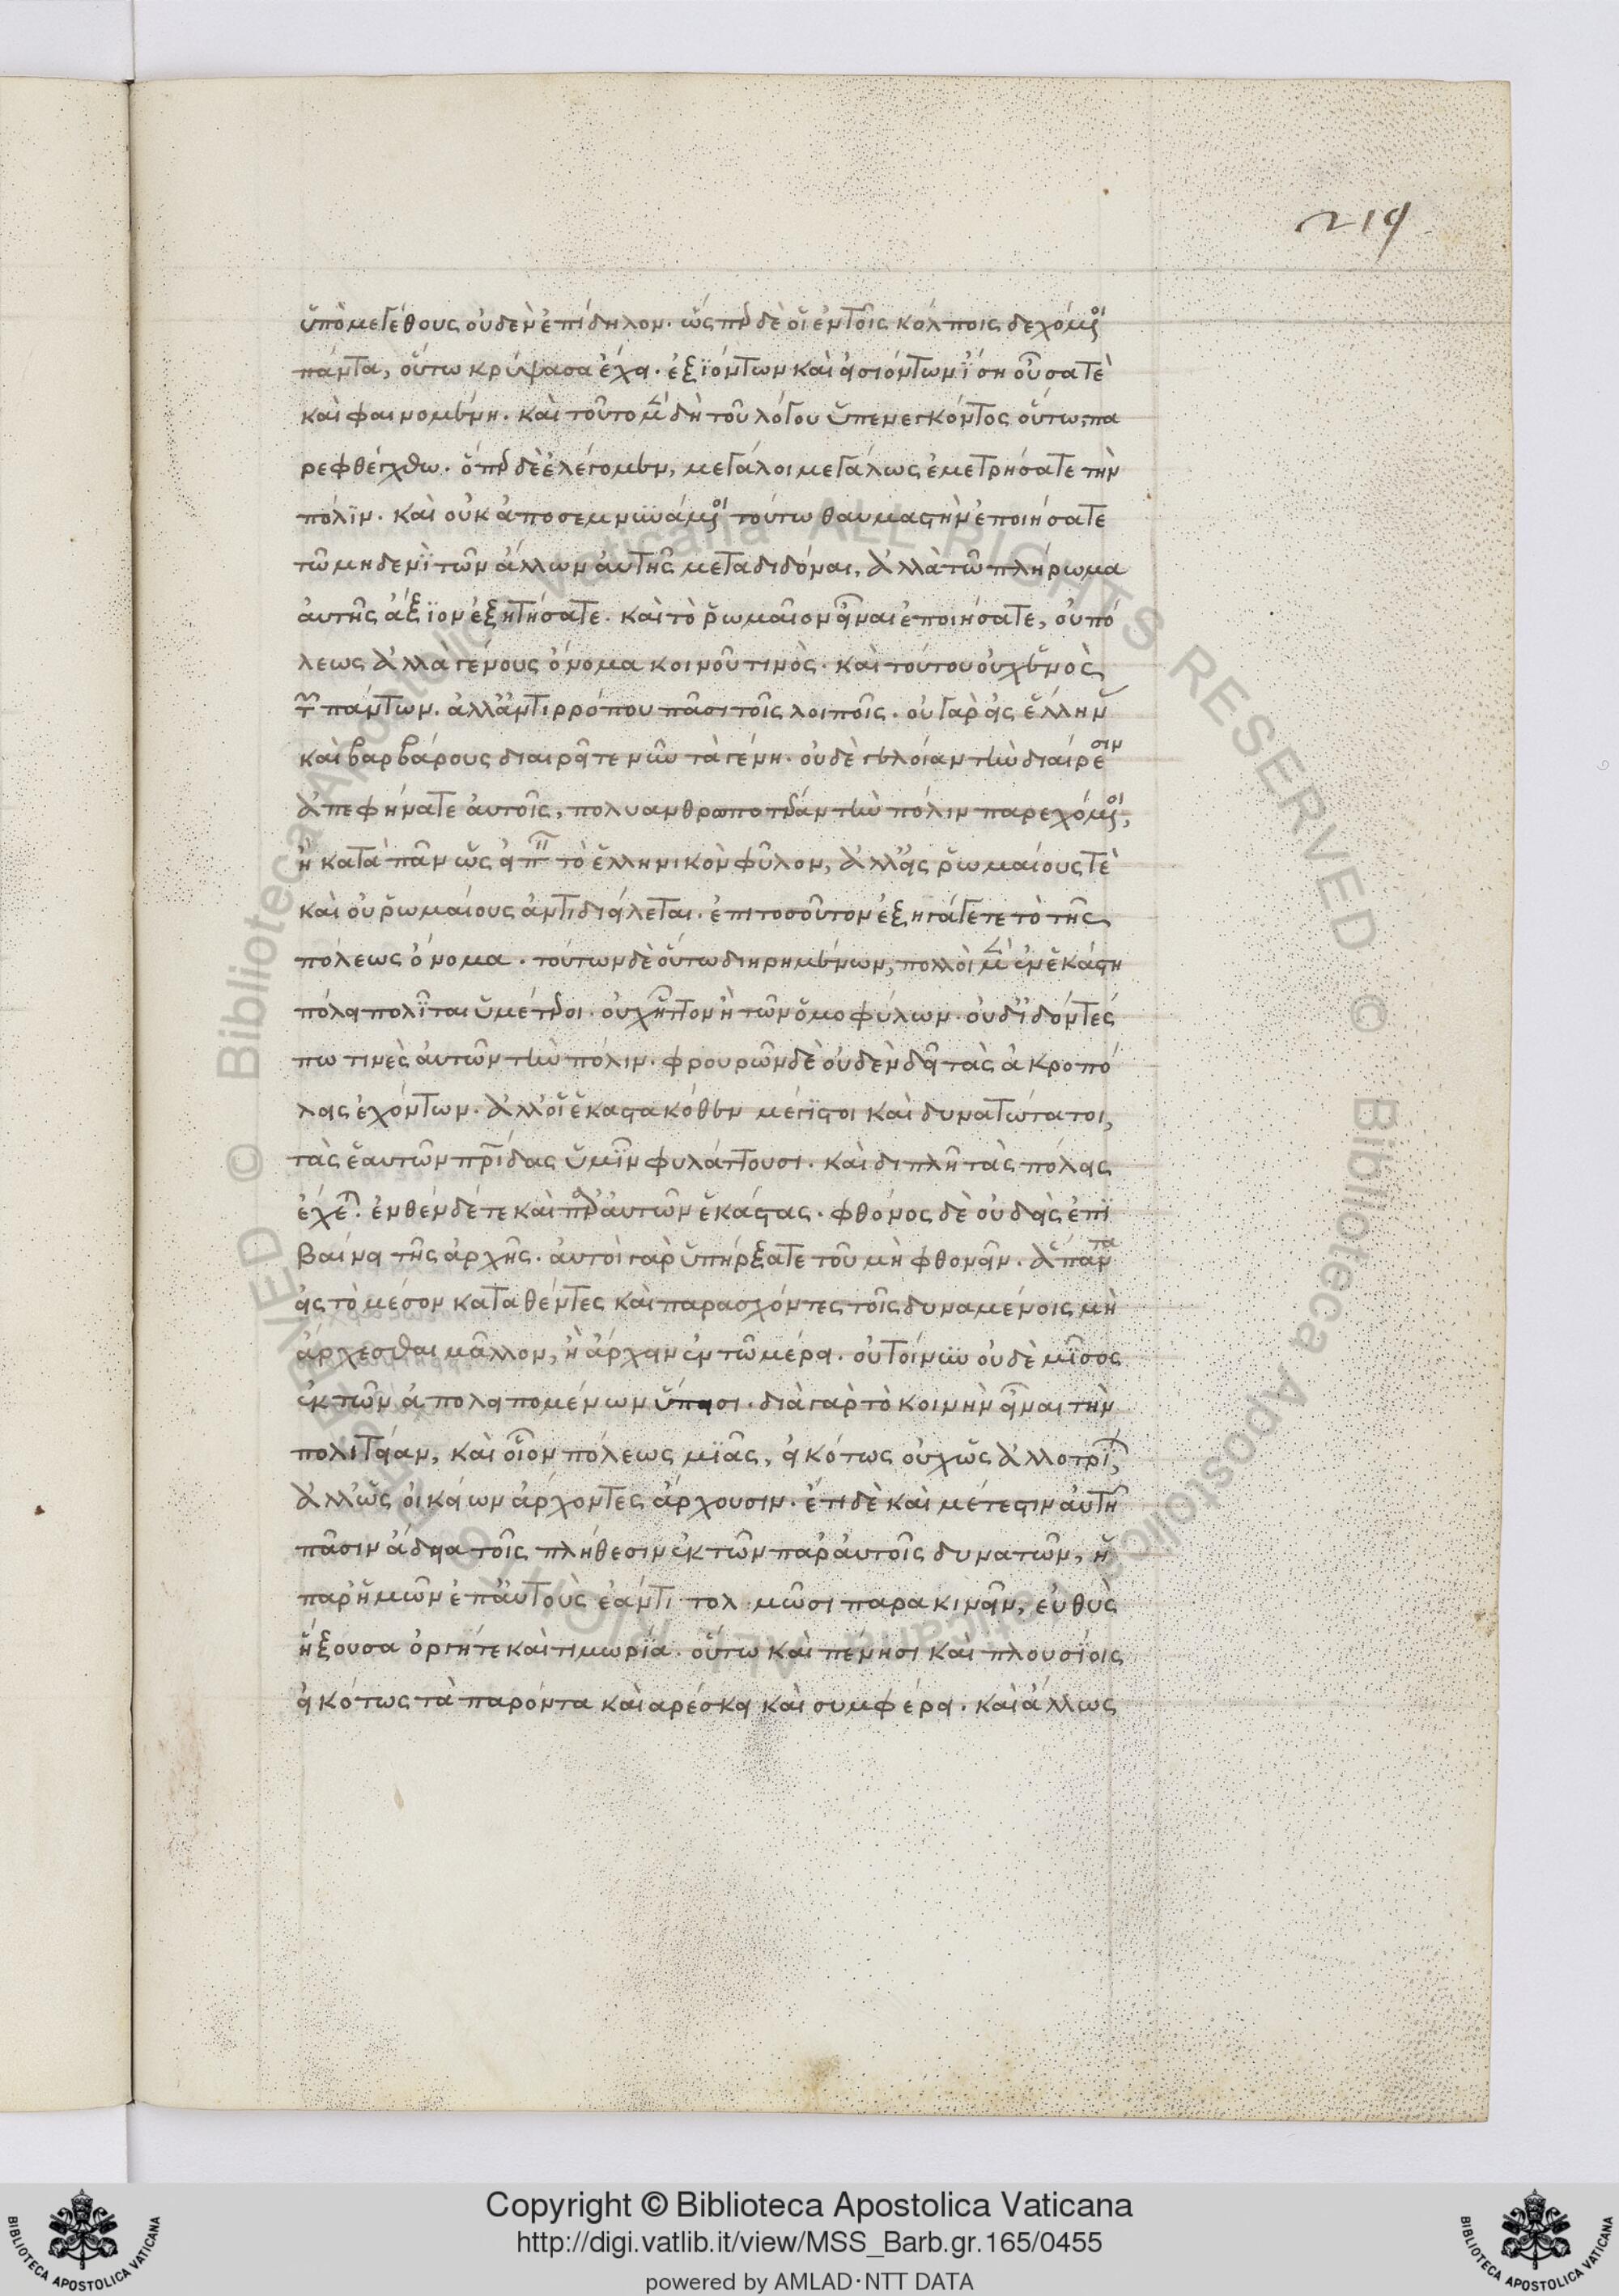 219
ὑπὸ μεγέθους οὐδὲν ἐπίδηλον. ὥσπερ δὲ οἱ ἐν τοῖς κόλποις δεχόμενοι
πάντα, οὕτω κρύψασα ἔχει. ἐξϊόντων καὶ εἰσιόντων ἴση οὖσα τὲ
καὶ φαινομένη. καὶ τοῦτο μὲν δὴ τοῦ λόγου ὑπενεγκόντος οὕτω, πα
ρεφθέγχθω. ὅπερ δὲ ἐλέγομεν, μεγάλοι μεγάλως ἐμετρήσατε τὴν
πόλϊν. καὶ οὐκ ἀποσεμνυνάμενοι τούτω θαυμαστὴν ἐποιήσατε
τῶ μηδενὶ τῶν ἄλλων αὐτῆς μεταδιδόναι, ἀλλὰ τῶ πλήρωμα
αὐτῆς ἄξϊον ἐξητήσατε. καὶ τὸ ῥωμαῖον εἶναι ἐποιήσατε, οὐ πό
λεως ἀλλὰ γένους ὄνομα κοινοῦ τινὸς. καὶ τούτου οὐχ ἑνὸς
τῶν πάντων. ἀλλ' ἀντιρρόπου πᾶσι τοῖς λοιποῖς. οὐ γὰρ εἰς ἕλλην
καὶ βαρβάρους διαιρεῖτε νῦν τὰ γένη. οὐδὲ γελοίαν τὴν διαίρεσιν
ἀπεφήνατε αὐτοῖς, πολυανθρωποτέραν τὴν πόλιν παρεχόμενοι,
ἢ κατὰ πᾶν ὡς εἰπεῖν τὸ ἑλληνικὸν φῦλον, ἀλλ' εἰς ῥωμαίους τὲ
καὶ οὐ ῥωμαίους ἀντιδιείλεται. ἐπι τοσοῦτον ἐξηγάγετε τὸ τῆς
πόλεως ὄνομα. τούτων δὲ οὕτω διηρημένων, πολλοὶ μὲν ἐν ἑκάστη
πόλει πολῖται ὑμέτεροι. οὐχ ἧττον ἢ τῶν ὁμοφύλων. οὐδ' ἰδόντές
πω τινὲς αὐτῶν τὴν πόλιν. φρουρῶν δὲ οὐδὲν δεῖ τὰς ἀκροπό
λεις ἐχόντων. ἀλλ' οἱ ἑκασταχόθεν μέγϊστοι καὶ δυνατώτατοι,
τὰς ἑαυτῶν πατρίδας ὑμῖν φυλάττουσι. καὶ διπλῆ τὰς πόλεις
ἔχετε. ἐνθένδέ τε καὶ παρ' αὐτῶν ἑκάστας. φθόνος δὲ οὐδεὶς ἐπι
βαίνει τῆς ἀρχῆς. αὐτοὶ γὰρ ὑπήρξατε τοῦ μὴ φθονεῖν. ἅπαντα
εἰς τὸ μέσον καταθέντες καὶ παρασχόντες τοῖς δυναμένοις μὴ
ἄρχεσθαι μᾶλλον, ἢ ἄρχειν ἐν τῶ μέρει. οὐ τοίνυν οὐδὲ μῖσος
ἐκ τῶν ἀπολειπομένων ὕπεισι. διὰ γὰρ τὸ κοινὴν εἶναι τὴν
πολιτείαν, καὶ οἷον πόλεως μϊᾶς, εἰκότως οὐχ ὡς ἀλλοτρί,
ἀλλ' ὡς οἰκείων ἄρχοντες ἄρχουσιν. ἔτι δὲ καὶ μέτεστιν αὐτῆ
πᾶσιν ἄδεια τοῖς πλήθεσιν ἐκ τῶν παρ' αὐτοῖς δυνατῶν, ἡ
παρ' ἡμῶν ἐπ' αὐτοὺς ἐάν τι τολμῶσι παρακινεῖν, εὐθὺς
ἥξουσα ὀργή τε καὶ τιμωρία. οὕτω καὶ πένησι καὶ πλουσίοις
εἰκότως τὰ παρόντα καὶ αρέσκει καὶ συμφέρει. καὶ ἄλλως
Copyright © Biblioteca Apostolica Vaticana
http://digi.vatlib.it/view/MSS_Barb.gr.165/0455
powered by AMLAD·NTT DATA